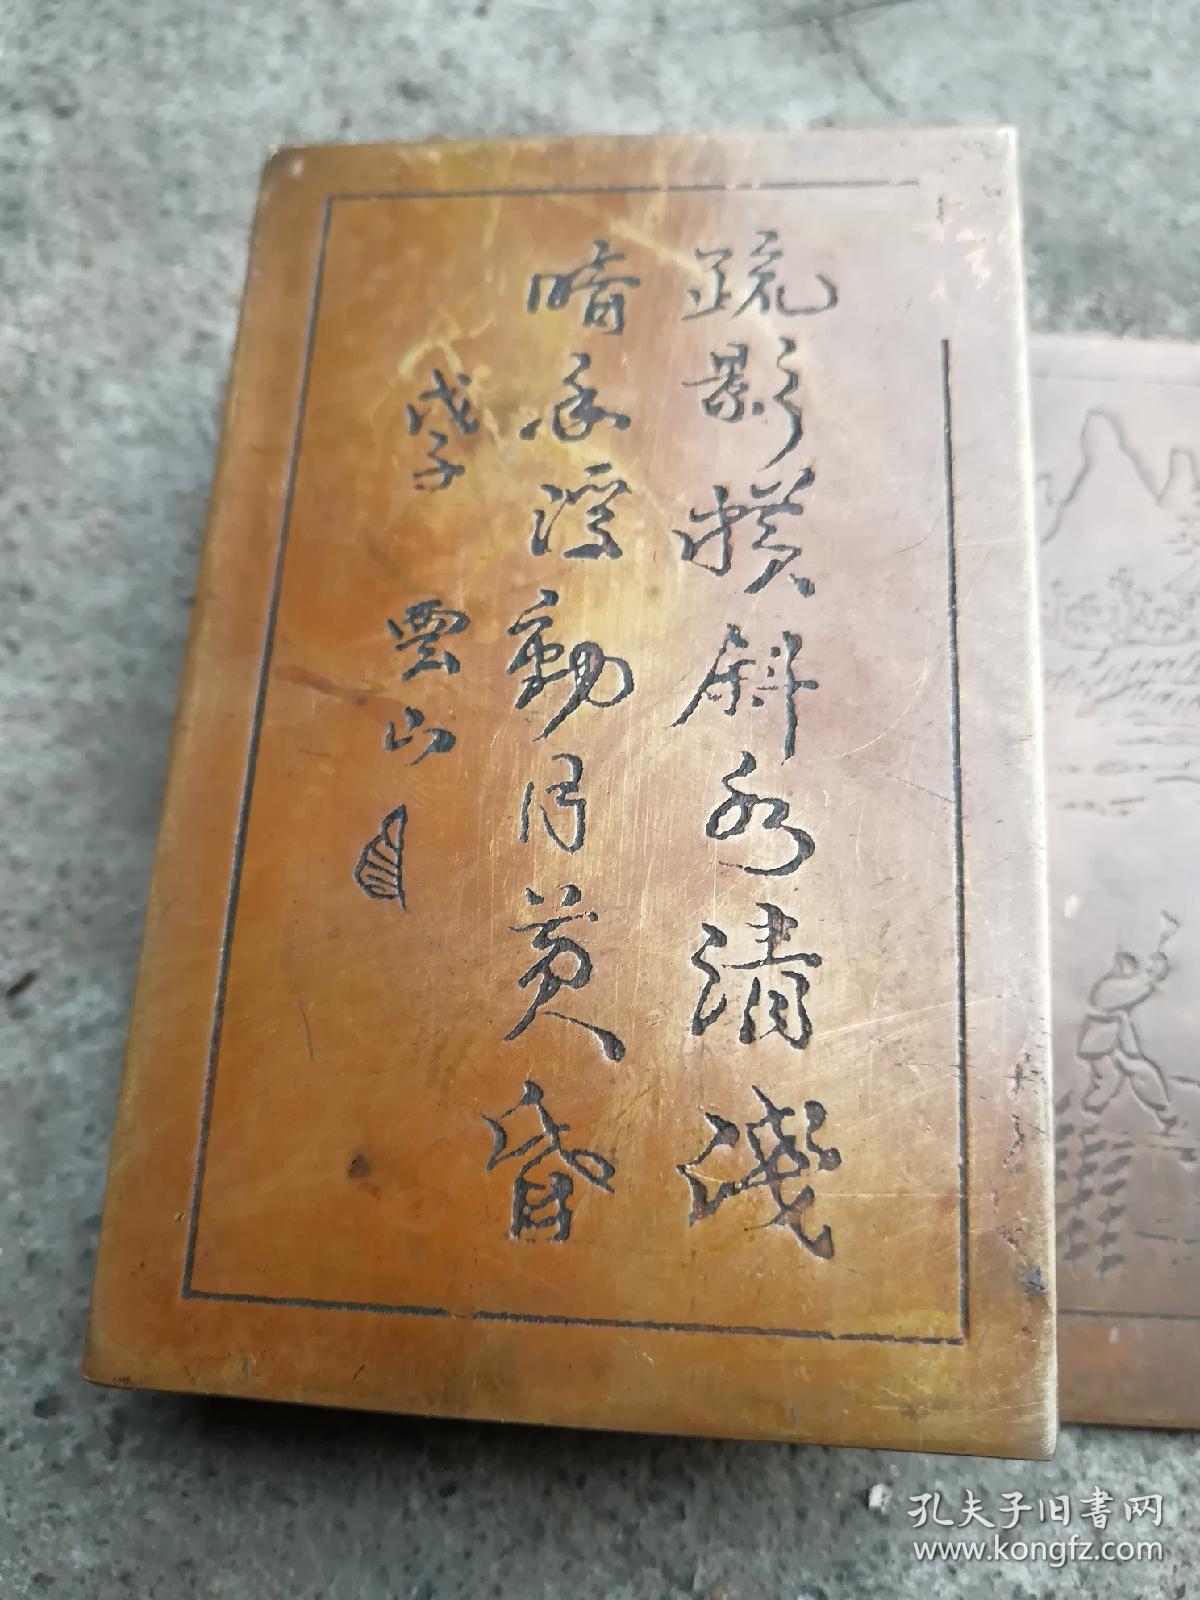 疏影横斜水清淺
暗香浮動月黄昏
戊子 雲山
孔夫子旧书网
www.kongfz.com